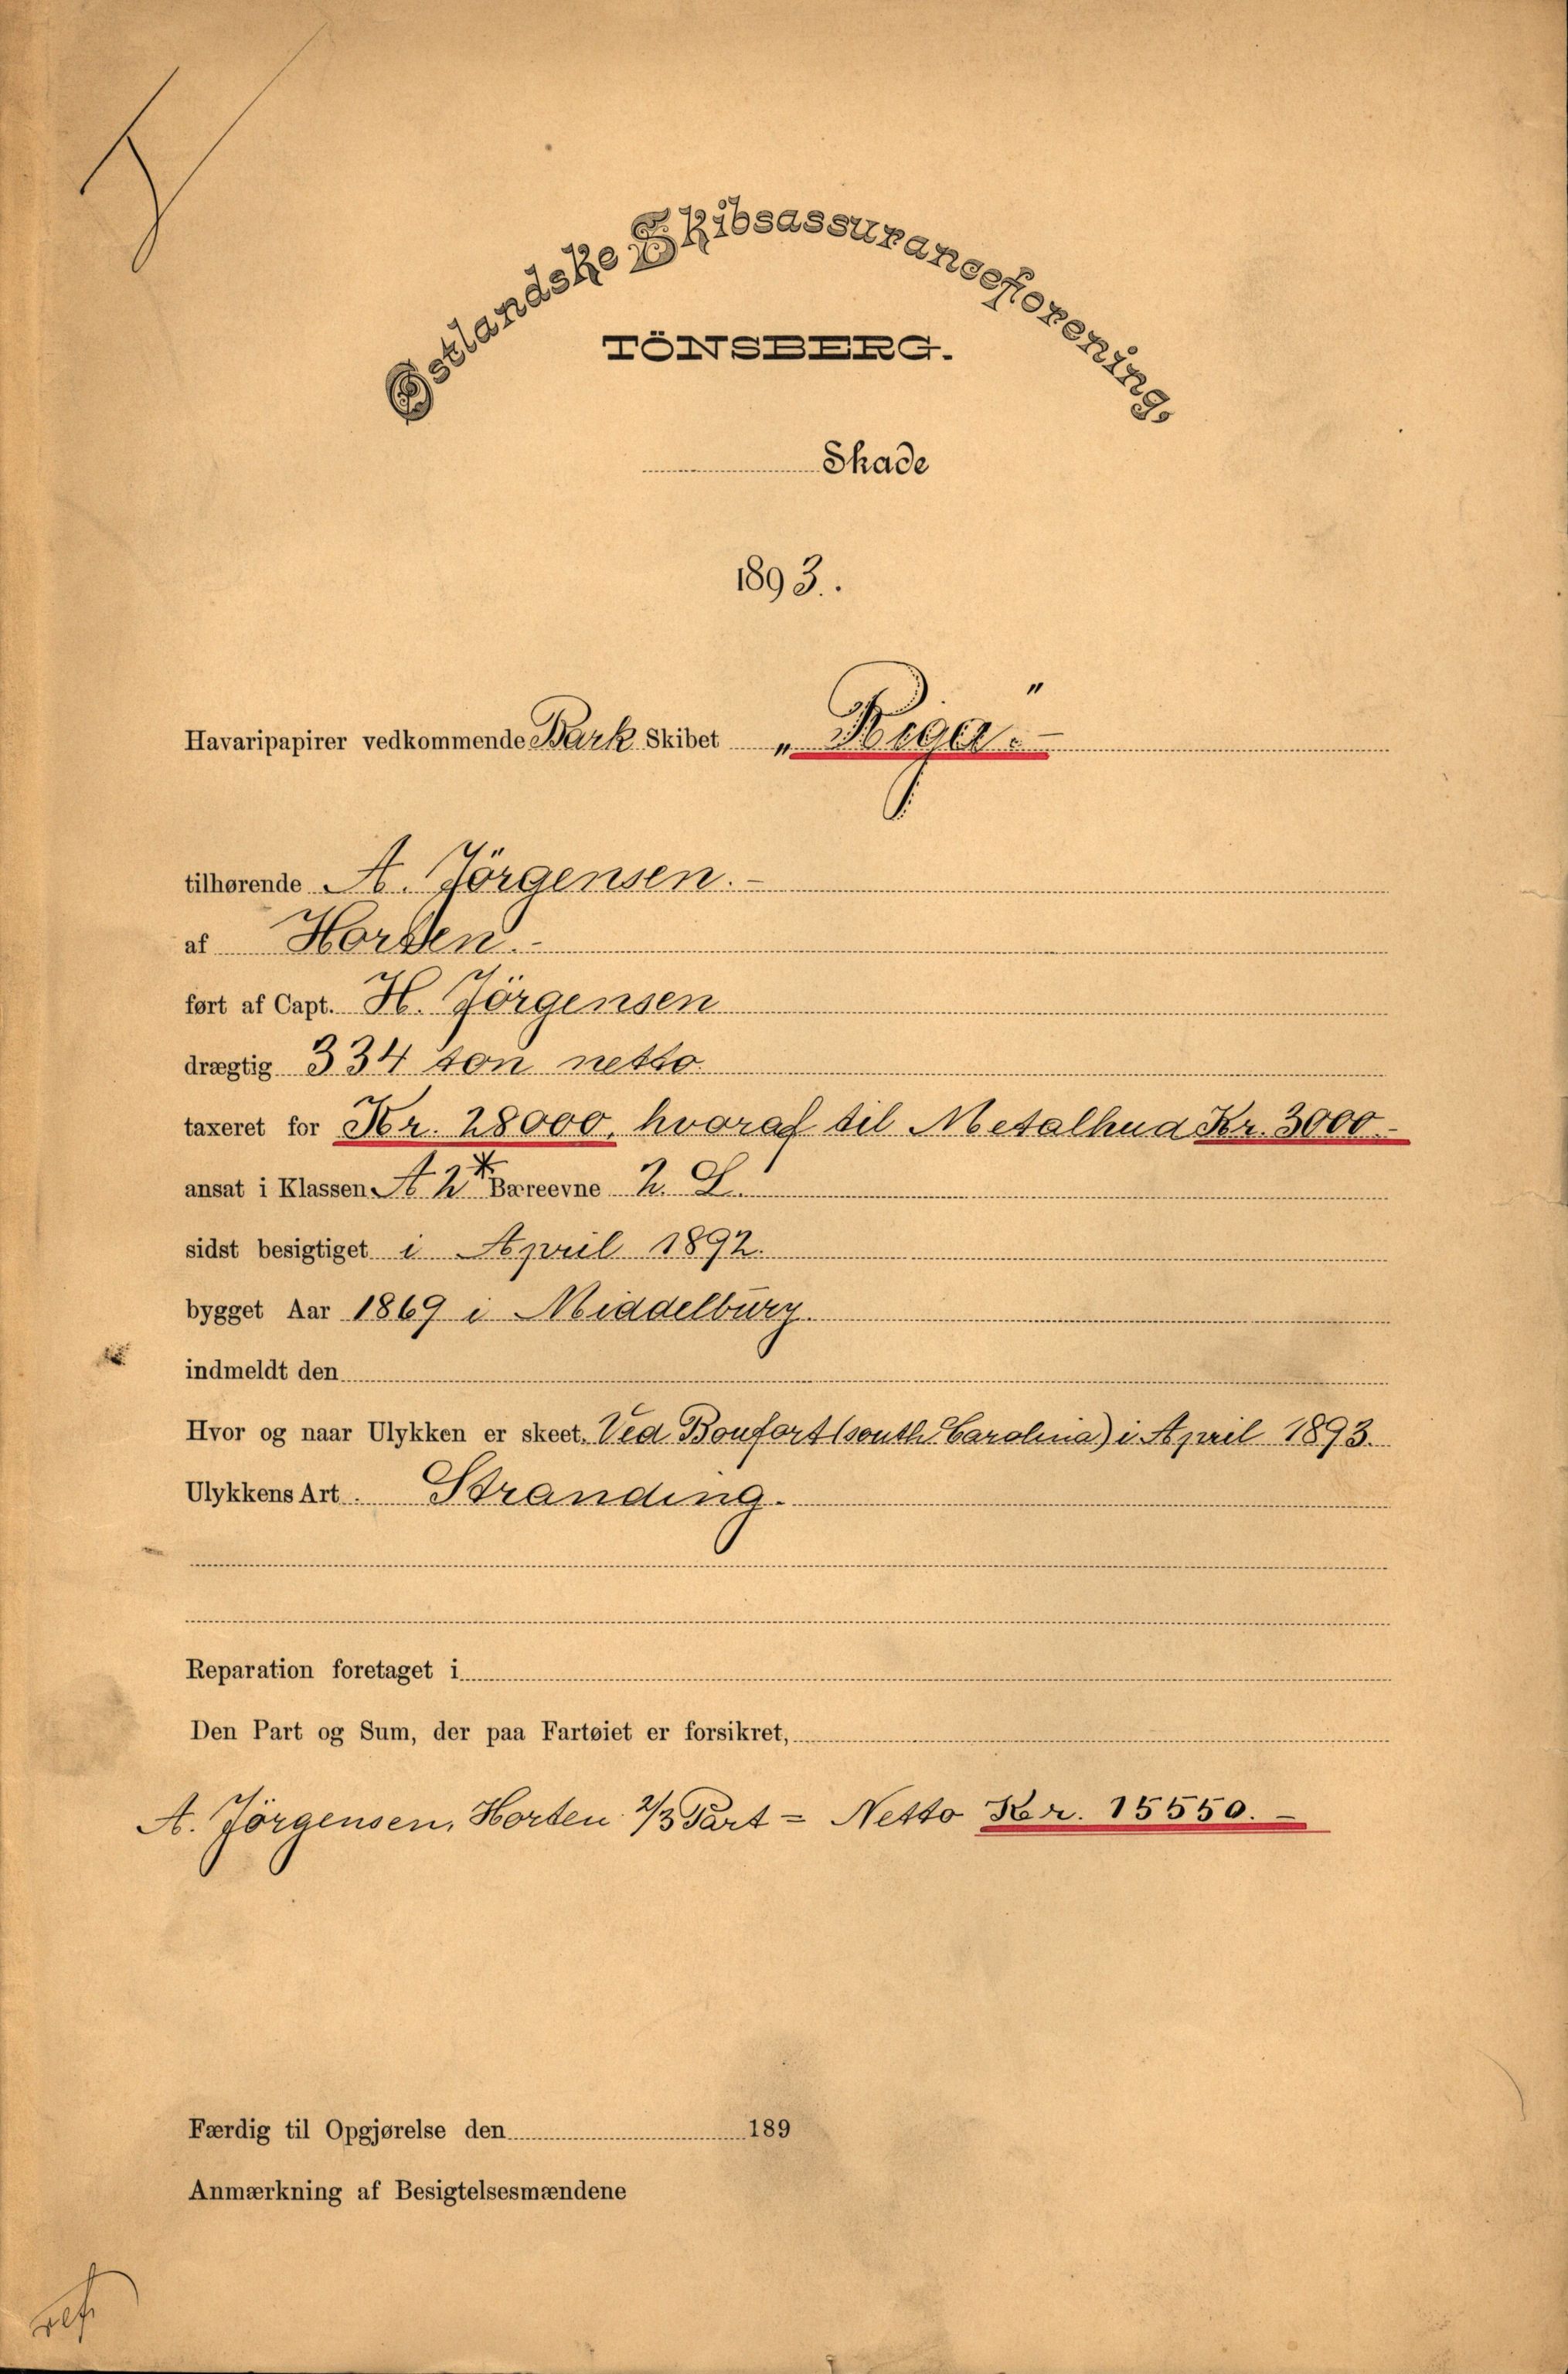 Østlandske Skibsassuranceforening,
TÖNSBERG.
Skade
1893.
Havaripapirer vedkommende Bark Skibet „Riga."
tilhørende A. Jörgensen.-
af Horten.-
ført af Capt. H. Jörgensen
drægtig 334 ton netto.
taxeret for Kr. 28000, hvoraf til Metalhud Kr. 3000.-
ansat i Klassen A 2* Bæreevne 2. L.
sidst besigtiget i April 1892.
bygget Aar 1869 i Middelburg.
indmeldt den
Hvor og naar Ulykken er skeet. Ved Boufort (south Carolina) i April 1893.
Ulykkens Art. Stranding.
Reparation foretaget i
Den Part og Sum, der paa Fartøiet er forsikret,
A. Jörgensen, Horten 2/3 Part = Netto Kr. 15550.-
Færdig til Opgjørelse den 189
Anmærkning af Besigtelsesmændene